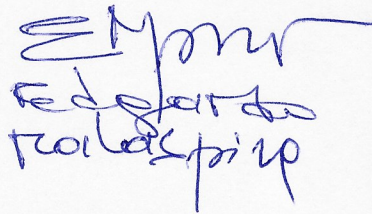 Edgardo
Malaspina